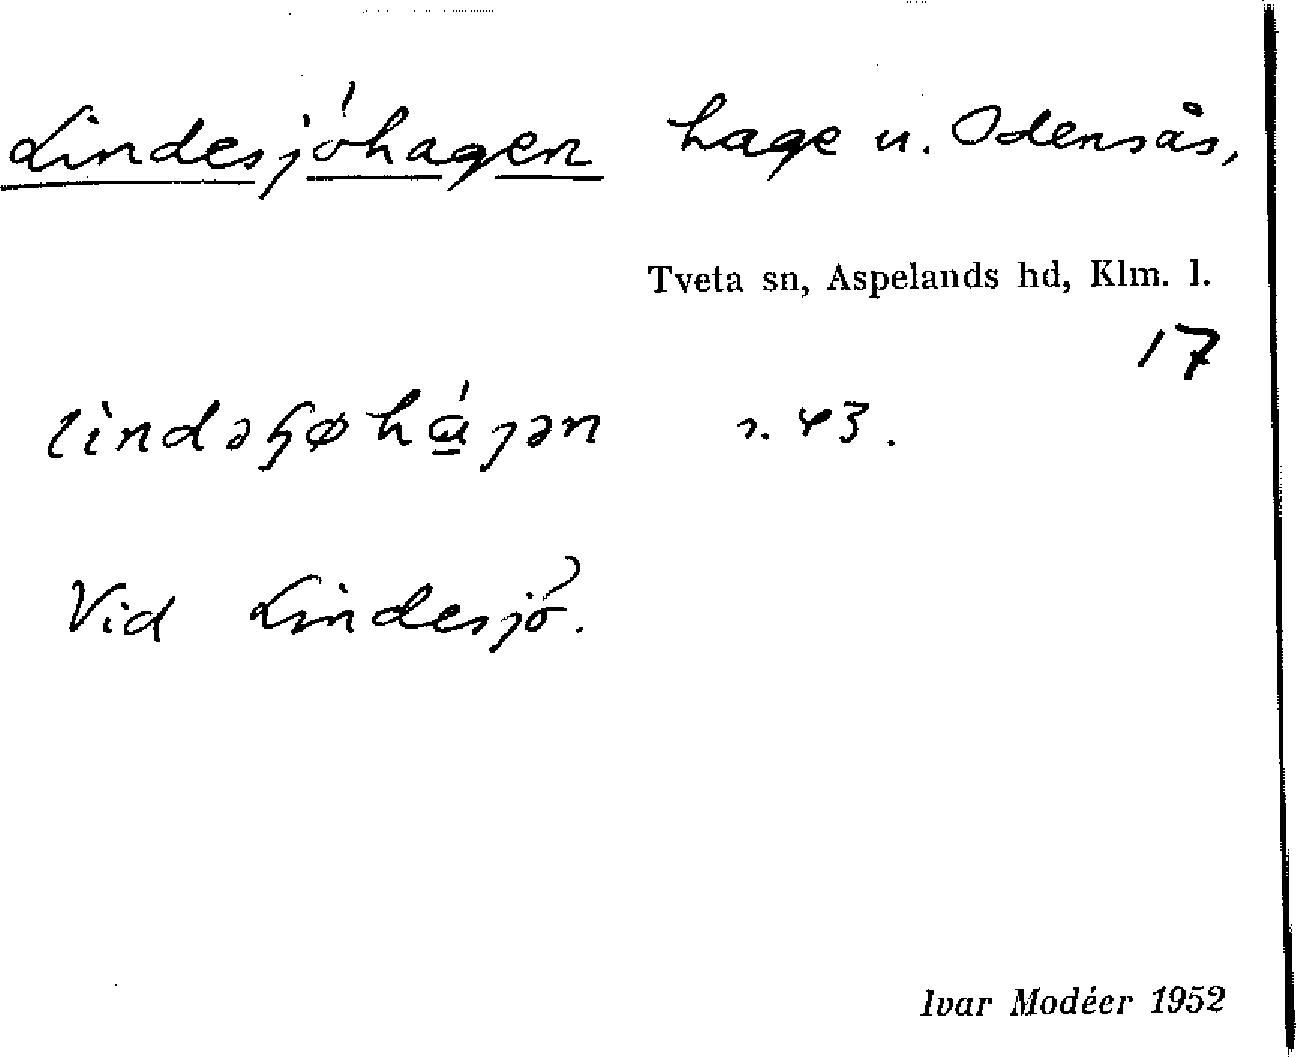 Lindesjöhagen hage u. Odensås,
Tveta sn, Aspelands hd, Klm. l.
17
s. 43.
Vid Lindesjö.
Ivar Modéer 1952